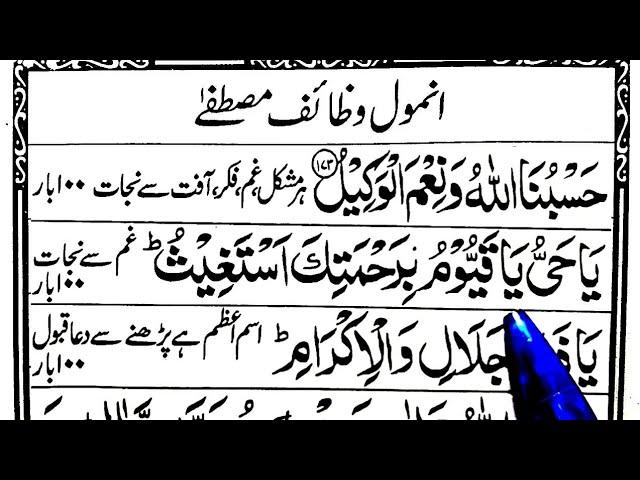 انمول وظائف مصطفےٰ
حَسْبُنَا اللّٰهُ وَنِعْمَ الْوَكِيْلُ ﴿۱۷۳﴾ ہر مشکل، غم، فکر، آفت سے نجات ۱۰۰ بار
يَا حَيُّ يَا قَيُّوْمُ بِرَحْمَتِكَ اَسْتَغِيْثُ ؕ غم سے نجات ۱۰۰ بار
يَا جَلَالِ وَالْاِكْرَامِ ؕ اسم اعظم ہے پڑھنے سے دعا قبول ۱۰۰ بار